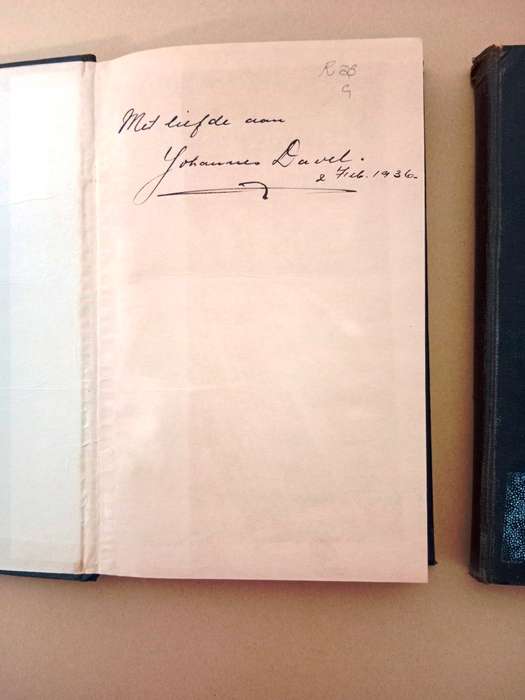 R28
G
Met liefde aan
Johannes Davel.
2 Feb. 1936.